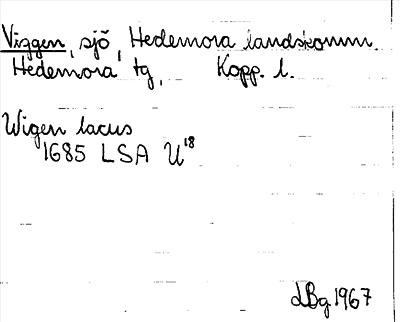 Viggen, sjö, Hedemora landskomm.
Hedemora tg, Kopp. l.
Wigen lacus
1685 LSA U18
LBg 1967